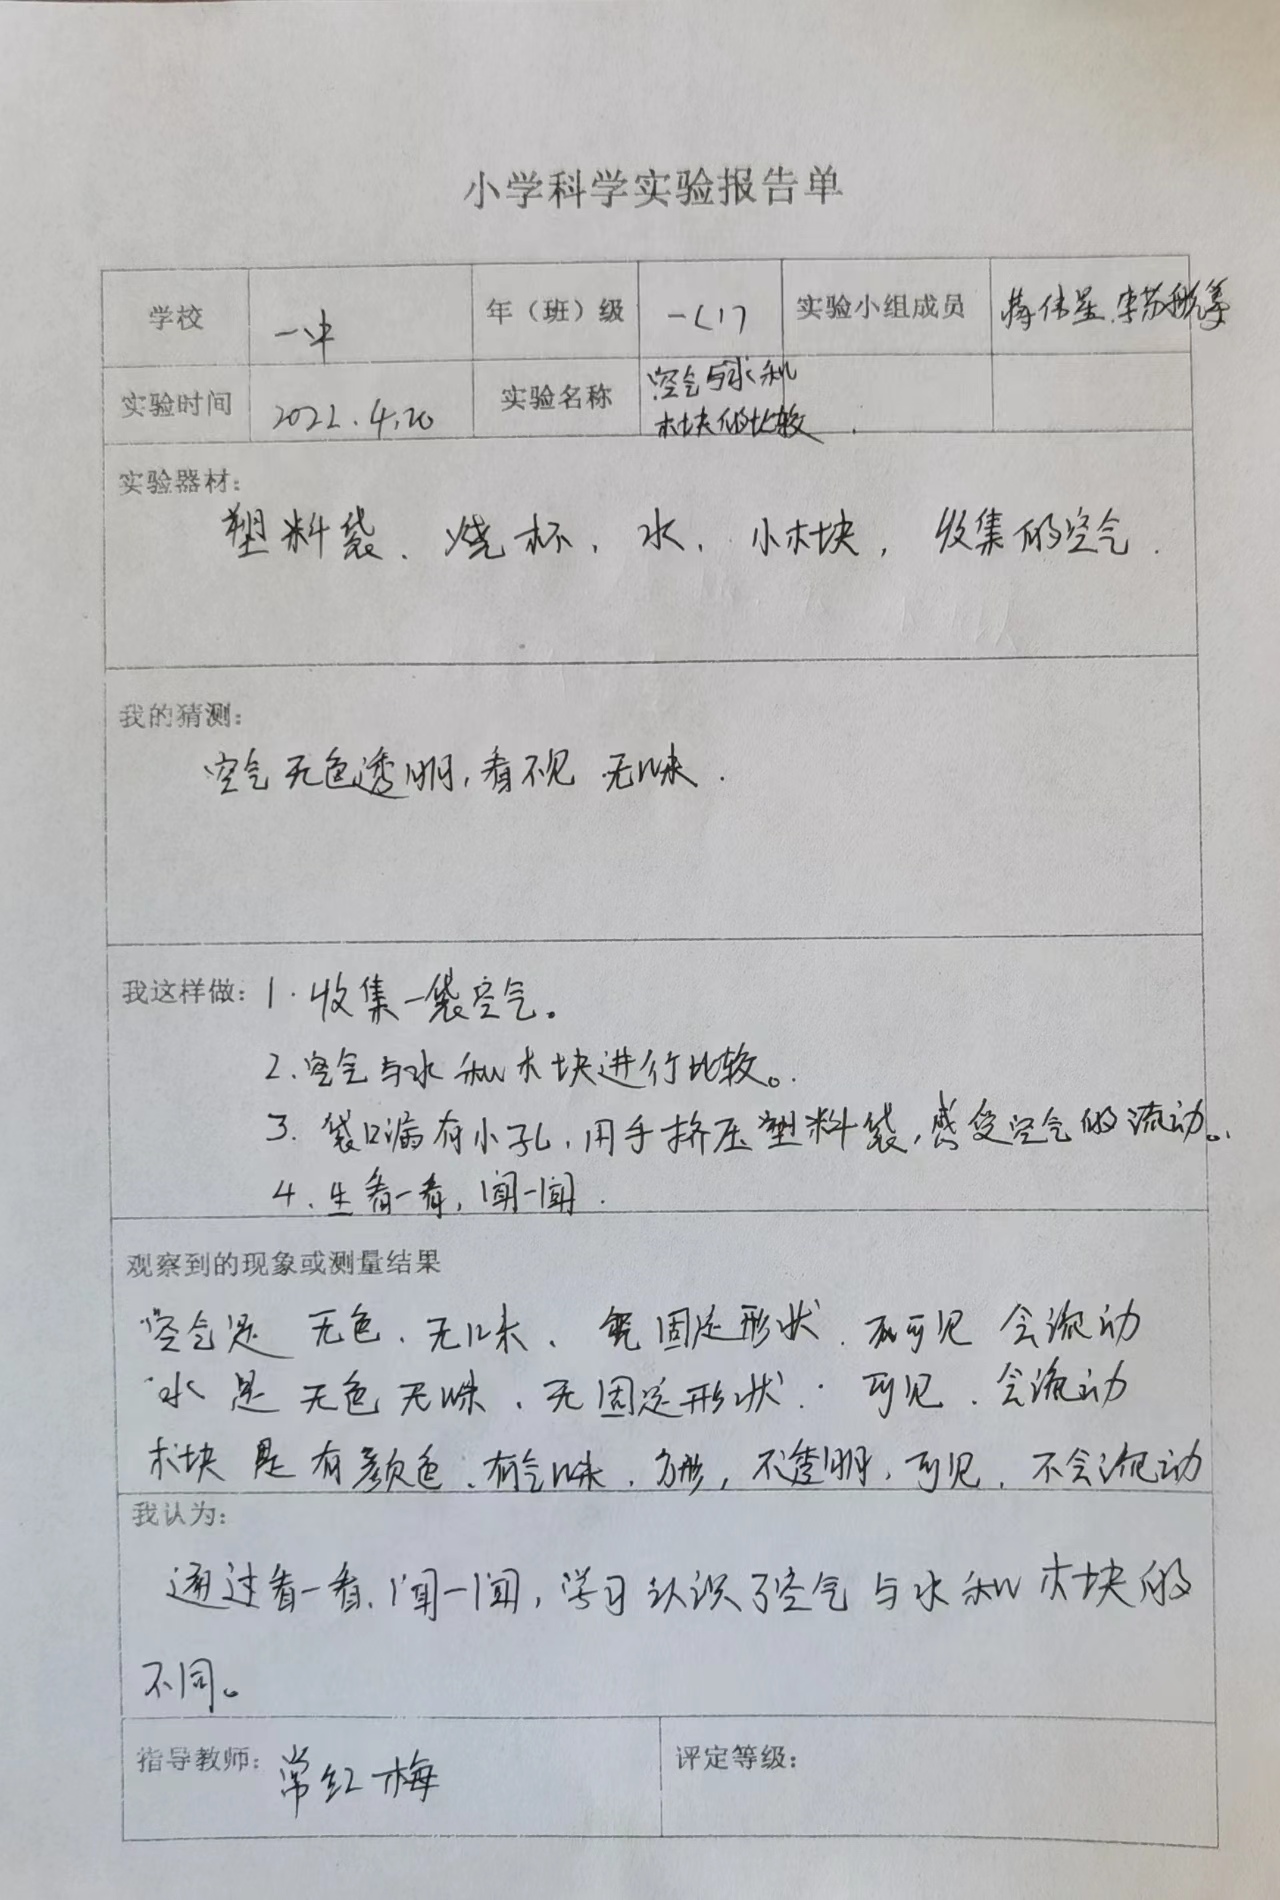 小学科学实验报告单
学校 一中 年（班）级 一（1） 实验小组成员 蒋伟星、李苏彬等
实验时间 2022.4.20 实验名称 空气与水和
木块的比较
实验器材：
塑料袋、烧杯、水、小木块，收集的空气.
我的猜测：
空气无色透明，看不见 无味.
我这样做：1.收集一袋空气。
2.空气与水和木块进行比较。
3.袋口漏有小孔，用手挤压塑料袋，感受空气的流动。
4.生看一看，闻一闻.
观察到的现象或测量结果
空气是 无色、无味、无固定形状、不可见 会流动
水是 无色无味、无固定形状. 可见、会流动
木块是有颜色、有气味、方形，不透明，可见，不会流动
我认为：
通过看一看、闻一闻，学习认识了空气与水和木块的
不同。
指导教师：常红梅 评定等级：